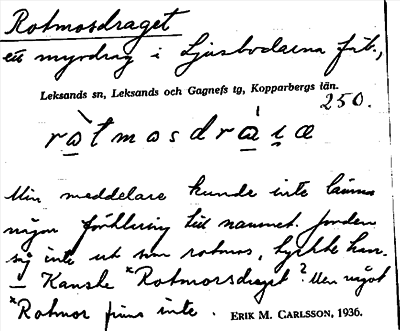 Rotmosdraget
ett myrdrag i Ljusbodarna fäb.,
Leksands sn, Leksands och Gagnefs tg, Kopparbergs län.
250.
ròtmosdràıæ
Min meddelare kunde inte lämna
någon förklaring till namnet. Jorden
såg inte ut som rotmos, tyckte han.
– Kanske *Rotmorsdraget? Men något
*Rotmor finns inte. ERIK M. CARLSSON, 1936.